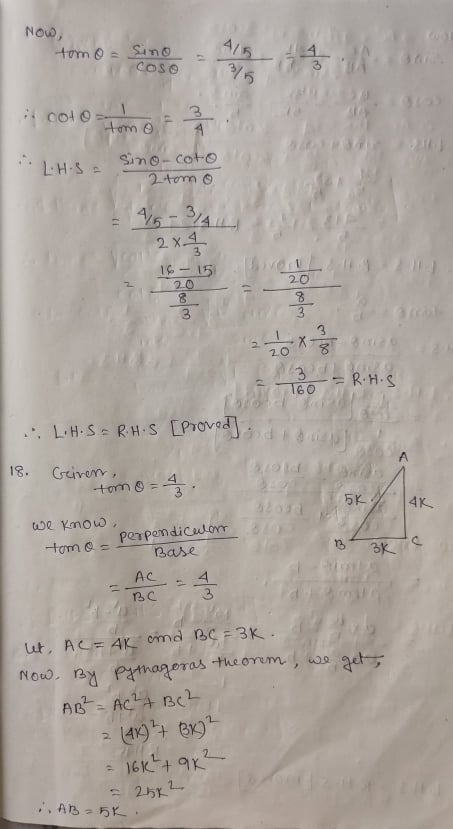 Now,
tan θ = sin θ / cos θ = (4/5) / (3/5) = 4/3 .
∴ cot θ = 1 / tan θ = 3/4 .
∴ L.H.S = (sin θ - cot θ) / (2 tan θ)
= (4/5 - 3/4) / (2 × 4/3)
= ((16 - 15)/20) / (8/3) = (1/20) / (8/3)
= 1/20 × 3/8
= 3/160 = R.H.S
∴ L.H.S = R.H.S [Proved].
18. Given,
tan θ = 4/3 .
We know,
tan θ = perpendicular / Base
= AC/BC = 4/3
A
5K 4K
B 3K C
let, AC = 4K and BC = 3K .
Now. By Pythagoras theorem, we get,
AB² = AC² + BC²
= (4K)² + (3K)²
= 16K² + 9K²
= 25K²
∴ AB = 5K .